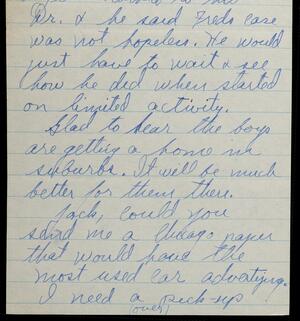 Dr. & he said Freds case
was not hopeless. He would
just have to wait & see
how he did when started
on limited activity.
Glad to hear the boys
are getting a home in
suburbs. It will be much
better for them there.
Jack, could you
send me a Chicago paper
that would have the
most used car advertising.
I need a pick-up
(over)